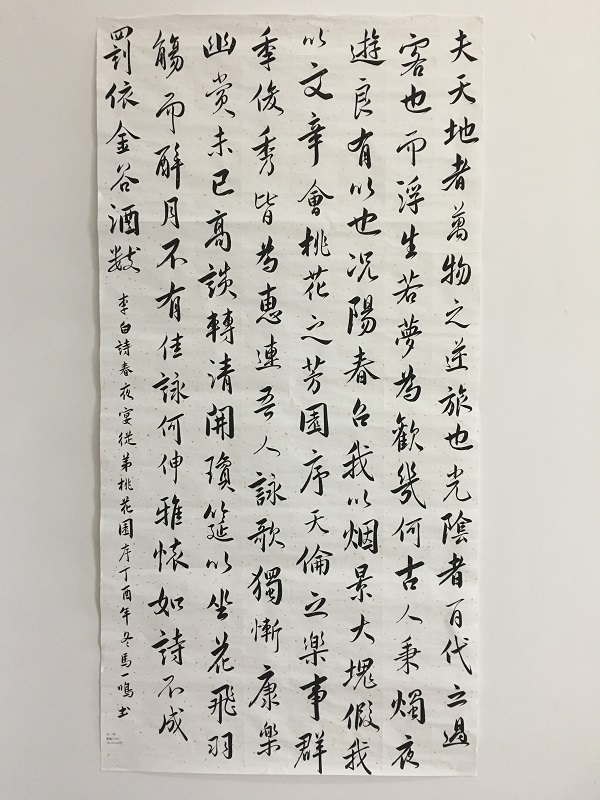 夫天地者萬物之逆旅也光陰者百代之過
客也而浮生若夢為歡幾何古人秉燭夜
遊良有以也况陽春召我以烟景大塊假我
以文章會桃花之芳園序天倫之樂事群
季俊秀皆為惠連吾人詠歌獨慚康樂
幽賞未已高談轉清開瓊筵以坐花飛羽
觴而醉月不有佳詠何伸雅懷如詩不成
罰依金谷酒數
李白詩春夜宴從弟桃花園序丁酉年冬馬一鳴书